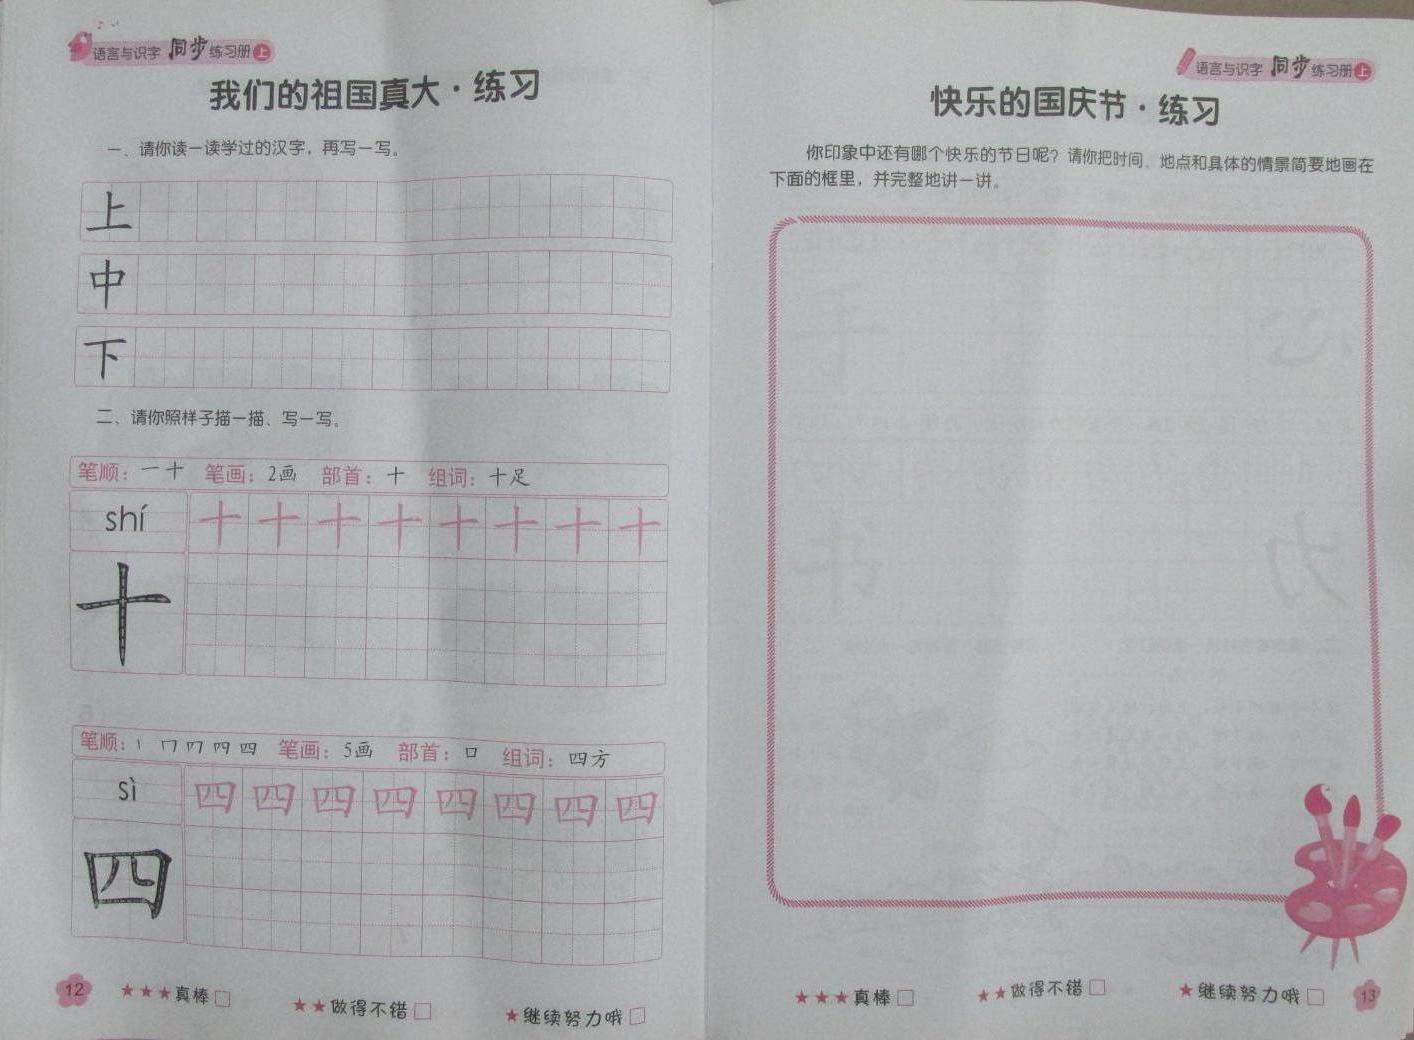 语言与识字 同步 练习册 上
我们的祖国真大·练习
一、请你读一读学过的汉字，再写一写。
上
中
下
二、请你照样子描一描、写一写。
笔顺：一 十 笔画：2画 部首：十 组词：十足
shí 十 十 十 十 十 十 十 十
十
笔顺：丨 冂 𦉪 四 四 笔画：5画 部首：口 组词：四方
sì 四 四 四 四 四 四 四 四
四
12 ★★★真棒□ ★★做得不错□ ★继续努力哦□
语言与识字 同步 练习册 上
快乐的国庆节·练习
你印象中还有哪个快乐的节日呢？请你把时间、地点和具体的情景简要地画在
下面的框里，并完整地讲一讲。
★★★真棒□ ★★做得不错□ ★继续努力哦□ 13